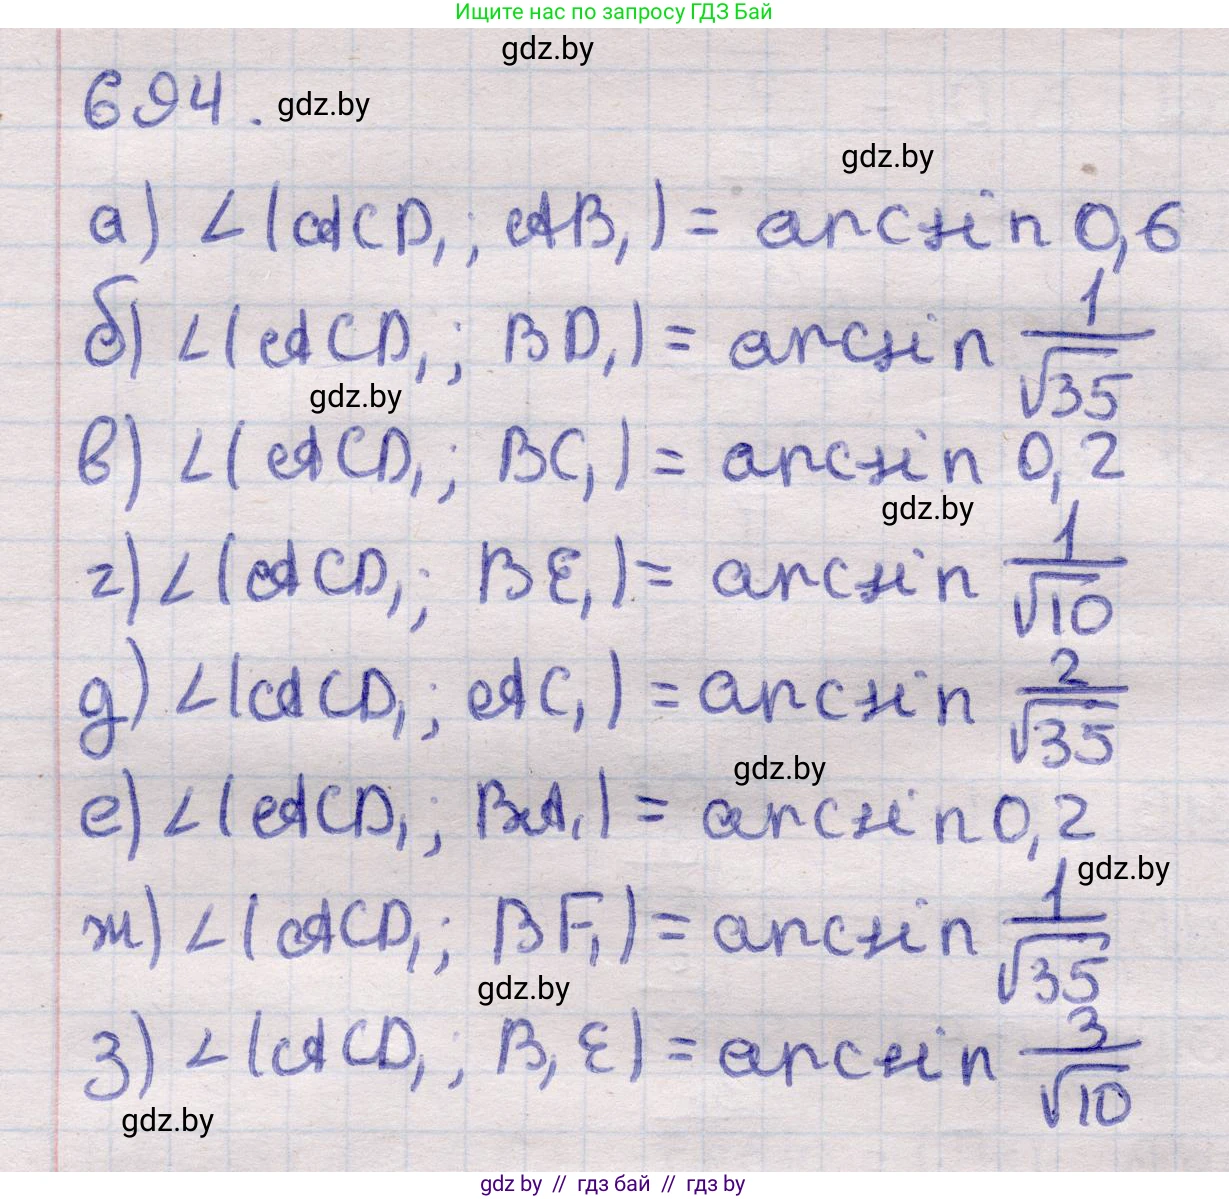 Ищите нас по запросу ГДЗ Бай
gdz.by
694. gdz.by
gdz.by
а) ∠(ACD₁; AB₁) = arcsin 0,6
б) ∠(ACD₁; BD₁) = arcsin 1/√35
gdz.by
в) ∠(ACD₁; BC₁) = arcsin 0,2
gdz.by
г) ∠(ACD₁; BE₁) = arcsin 1/√10
д) ∠(ACD₁; AC₁) = arcsin 2/√35
gdz.by
е) ∠(ACD₁; BA₁) = arcsin 0,2
gdz.by
ж) ∠(ACD₁; BF₁) = arcsin 1/√35
gdz.by
з) ∠(ACD₁; B₁E) = arcsin 3/√10
gdz.by
gdz by // гдз бай // гдз by